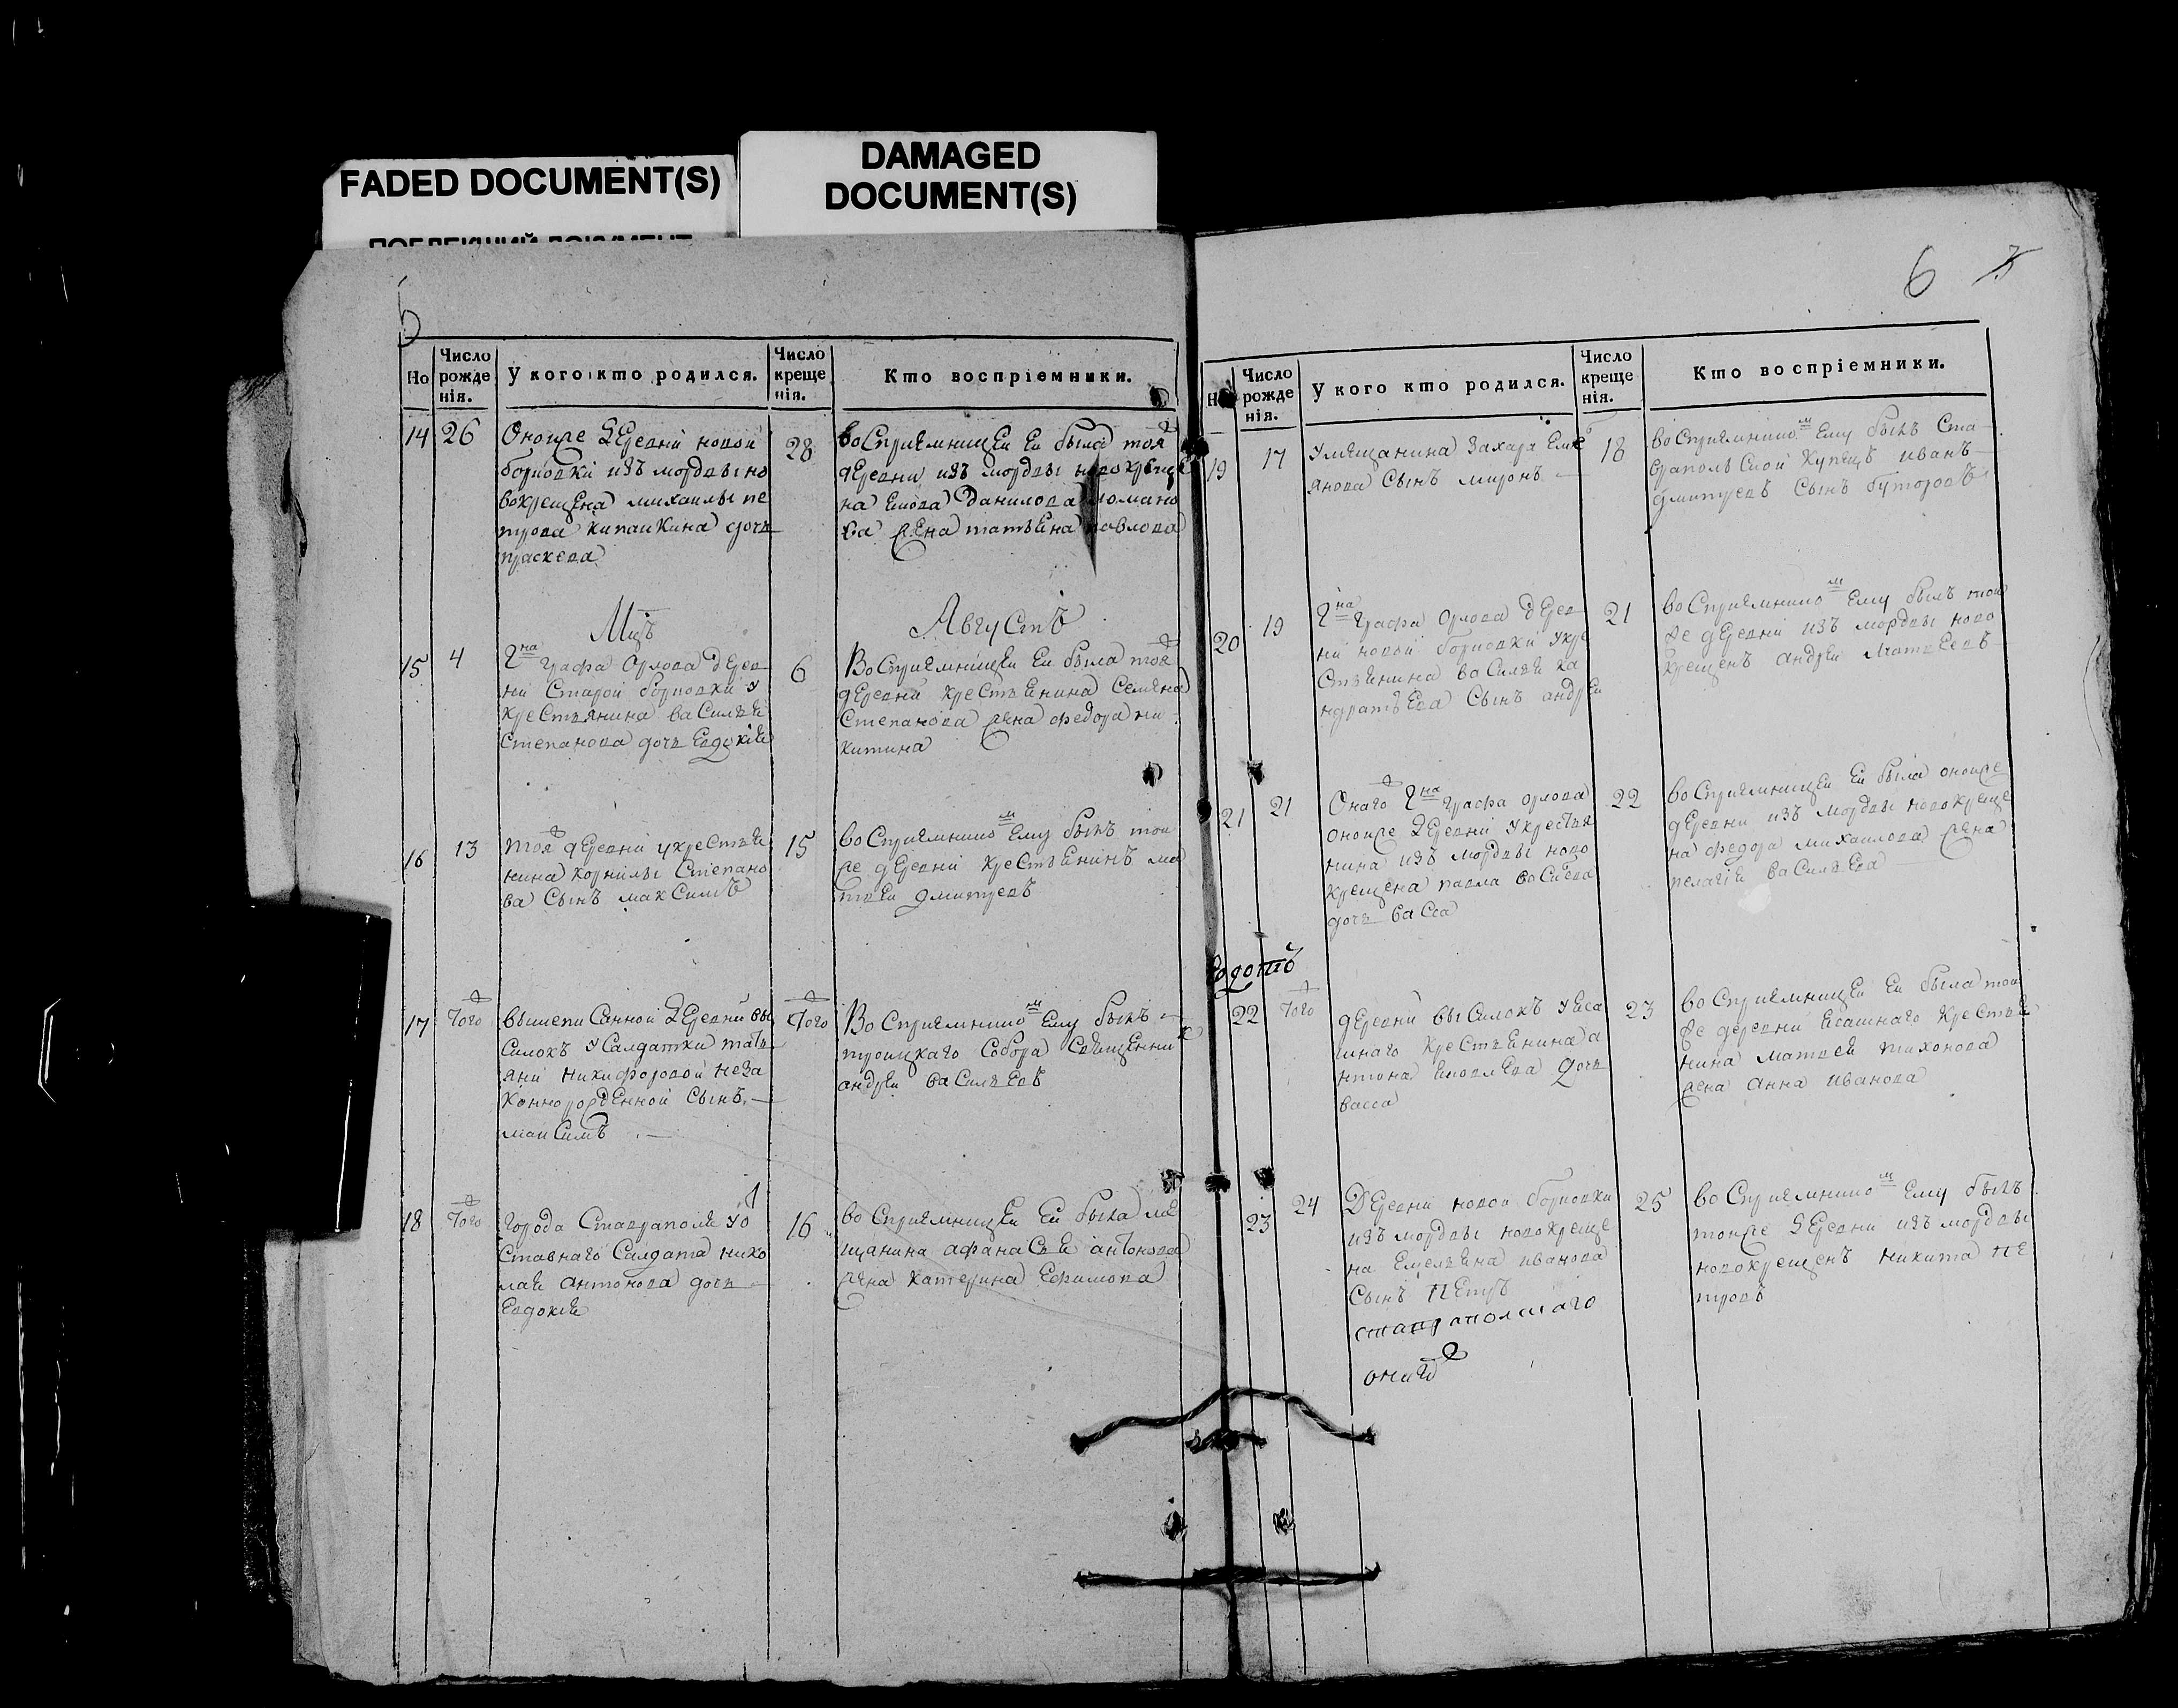 FADED DOCUMENT(S)
DAMAGED
DOCUMENT(S)
6
Но
Число рожде нія.
У кого кто родился.
Число креще нія.
Кто воспріемники.
14 26
Оноиже деревни новой
борковки изъ мордвы но
вокрещена михаилы пе
трова кипаикина дочь
праскева
28
восприемницеи еи была тоя
деревни изъ мордвы новокреще
на якова данилова
ва жена татьяна павлова
Мцъ Августъ
15 4
гна графа Орлова дерев
ни Старой борковки у
крестьянина василья
степанова дочь евдокия
6
Восприемницеи еи была тоя
деревни крестьянина семена
степанова жена федора ни
китина
16 13
тоя деревни у крестья
нина корнилы степано
ва сынъ максимъ
15
восприемником ему былъ тои
же деревни крестьянинъ ма
твеи дмитревъ
17 того
вышеписанной деревни вы
силокъ у салдатки тать
яни никифоровой неза
коннорожденной сынъ
максимъ
того
Восприемником ему былъ
троицкаго собора священник
андреи васильевъ
18 того
города Ставраполя у о
ставнаго салдата нико
лая антонова дочь
евдокия
16
восприемницеи еи была ме
щанина афанасья антонова
жена катерина ефимова
Число рожде нія.
У кого кто родился.
Число креще нія.
Кто воспріемники.
19 17
у мещанина захара емел
янова сынъ миронъ
18
восприемником ему былъ ста
враполь скои купецъ иванъ
дмитревъ сынъ буторовъ
20 19
гна графа орлова дерев
ни новой борковки у кре
стьянина василья ка
ндратьева сынъ андреи
21
восприемником ему былъ тои
же деревни изъ мордвы ново
крещенъ андреи матвеевъ
21 21
Онаго гна графа орлова
оноиже деревни у крестья
нина изъ мордвы ново
крещена павла васильева
дочь васса
22
восприемницеи еи была оноиже
деревни изъ мордвы новокреще
на федора михаилова жена
пелагия васильева
22 того
деревни высилокъ у яса
шнаго крестьянина а
нтона яковлева дочь
васса
23
восприемницеи еи была тои
же деревни ясашнаго крестья
нина матвея тихонова
жена анна иванова
23 24
Деревни новой борковки
изъ мордвы новокреще
на емельяна иванова
сынъ петръ
ставрапольскаго
25
восприемником ему былъ
тоиже деревни изъ мордвы
новокрещенъ никита пе
тровъ